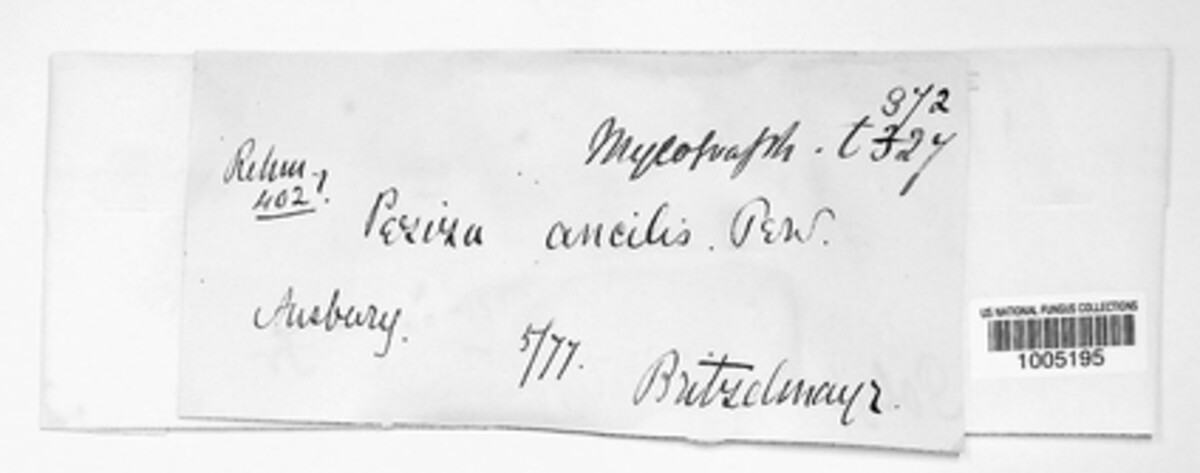 372
Mycograph. t 327
Rehm
402!
Peziza ancilis. Pers.
Ausburg.
5/77.
Britzelmayr.
US NATIONAL FUNGUS COLLECTIONS
1005195